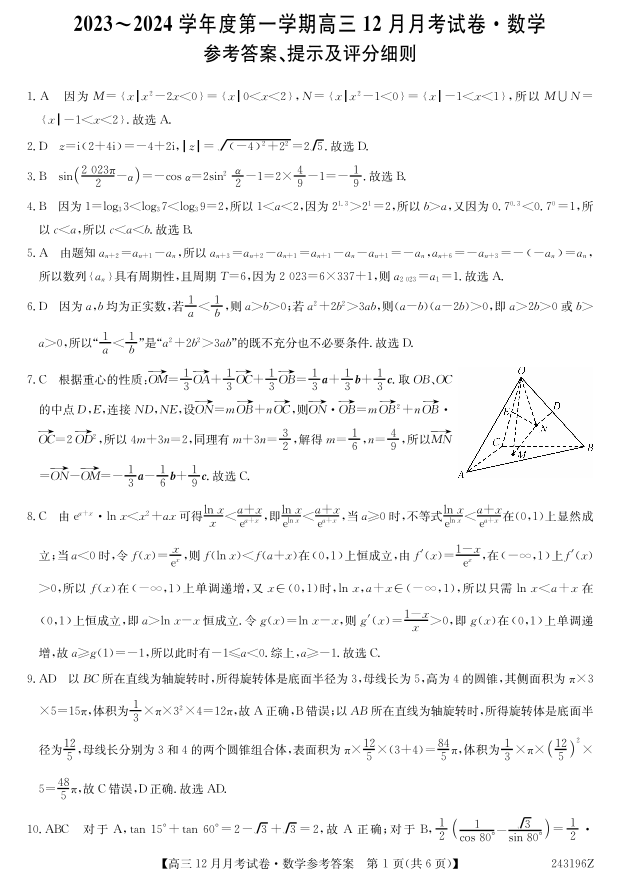 2023～2024 学年度第一学期高三 12 月月考试卷·数学
参考答案、提示及评分细则
1. A 因为 M={x|x²-2x<0}={x|0<x<2},N={x|x²-1<0}={x|-1<x<1},所以 M∪N=
{x|-1<x<2}.故选 A.
2. D z=i(2+4i)=-4+2i,|z|=√((-4)²+2²)=2√5.故选 D.
3. B sin(2 023π/2-α)=-cos α=2sin² α/2-1=2×4/9-1=-1/9.故选 B.
4. B 因为 1=log₃3<log₃7<log₃9=2,所以 1<a<2,因为 2^1.3>2¹=2,所以 b>a,又因为 0.7^0.3<0.7⁰=1,所
以 c<a,所以 c<a<b.故选 B.
5. A 由题知 aₙ₊₂=aₙ₊₁-aₙ,所以 aₙ₊₃=aₙ₊₂-aₙ₊₁=aₙ₊₁-aₙ-aₙ₊₁=-aₙ,aₙ₊₆=-aₙ₊₃=-(-aₙ)=aₙ,
所以数列{aₙ}具有周期性,且周期 T=6,因为 2 023=6×337+1,则 a₂ ₀₂₃=a₁=1.故选 A.
6. D 因为 a,b 均为正实数,若1/a<1/b,则 a>b>0;若 a²+2b²>3ab,则(a-b)(a-2b)>0,即 a>2b>0 或 b>
a>0,所以“1/a<1/b”是“a²+2b²>3ab”的既不充分也不必要条件.故选 D.
7. C 根据重心的性质:OM→=1/3 OA→+1/3 OC→+1/3 OB→=1/3 a+1/3 b+1/3 c.取 OB、OC
的中点 D、E,连接 ND,NE,设ON→=mOB→+nOC→,则ON→·OB→=mOB→²+nOB→·
OC→=2 OD→²,所以 4m+3n=2,同理有 m+3n=3/2,解得 m=1/6,n=4/9,所以MN→
=ON→-OM→=-1/3 a-1/6 b+1/9 c.故选 C.
O
D
E
N
C
M
B
A
8. C 由 e^(a+x)·ln x<x²+ax 可得ln x/x<(a+x)/e^(a+x),即ln x/e^(ln x)<(a+x)/e^(a+x),当 a≥0 时,不等式ln x/e^(ln x)<(a+x)/e^(a+x)在(0,1)上显然成
立;当 a<0 时,令 f(x)=x/eˣ,则 f(ln x)<f(a+x)在(0,1)上恒成立,由 f′(x)=(1-x)/eˣ,在(-∞,1)上 f′(x)
>0,所以 f(x)在(-∞,1)上单调递增,又 x∈(0,1)时,ln x,a+x∈(-∞,1),所以只需 ln x<a+x 在
(0,1)上恒成立,即 a>ln x-x 恒成立.令 g(x)=ln x-x,则 g′(x)=(1-x)/x>0,即 g(x)在(0,1)上单调递
增,故 a≥g(1)=-1,所以此时有-1≤a<0.综上,a≥-1.故选 C.
9. AD 以 BC 所在直线为轴旋转时,所得旋转体是底面半径为 3,母线长为 5,高为 4 的圆锥,其侧面积为 π×3
×5=15π,体积为1/3×π×3²×4=12π,故 A 正确,B 错误;以 AB 所在直线为轴旋转时,所得旋转体是底面半
径为12/5,母线长分别为 3 和 4 的两个圆锥组合体,表面积为 π×12/5×(3+4)=84/5 π,体积为1/3×π×(12/5)²×
5=48/5 π,故 C 错误,D 正确.故选 AD.
10. ABC 对于 A,tan 15°+tan 60°=2-√3+√3=2,故 A 正确;对于 B,1/2(1/cos 80°-√3/sin 80°)=1/2·
【高三 12 月月考试卷·数学参考答案 第 1 页(共 6 页)】
243196Z